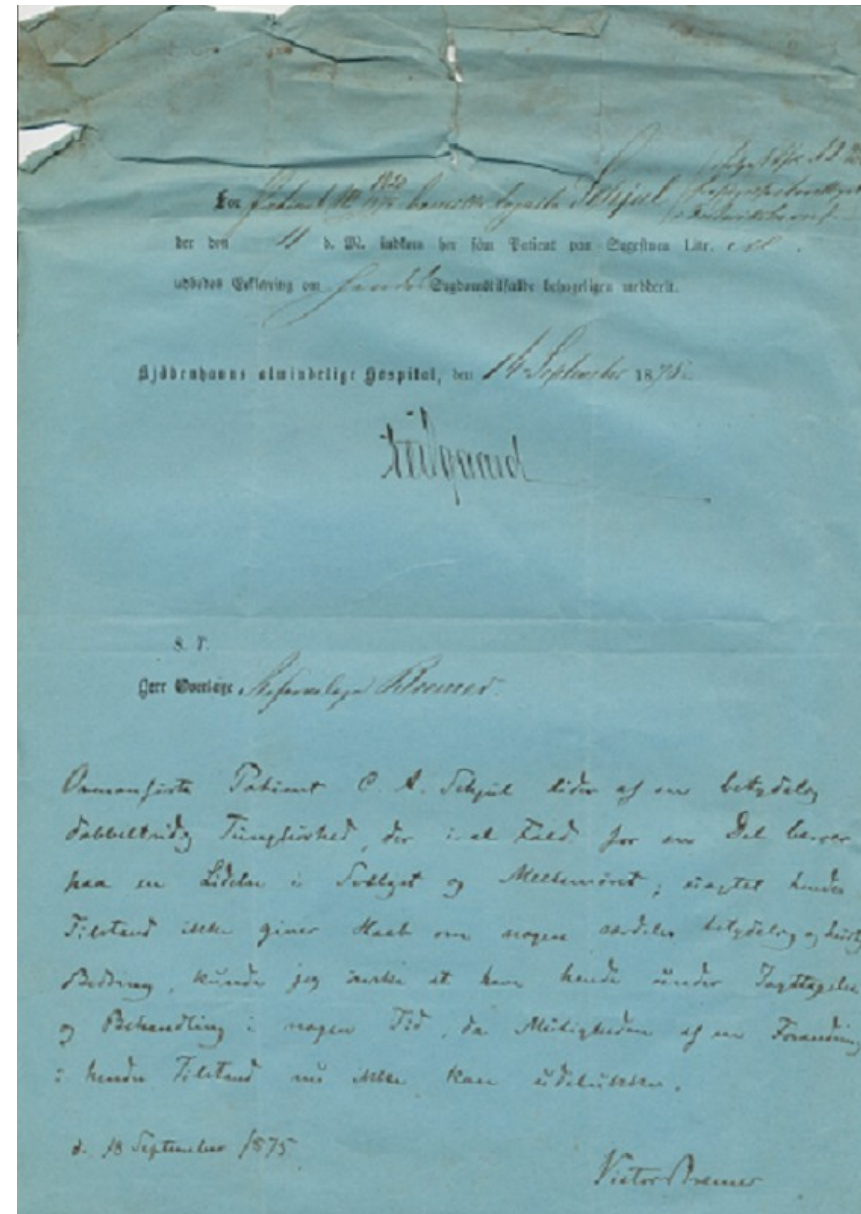 For Patient Schjul
der den 11 d. M. indkom her som Patient paa Sygestuen Litr.
udbedes Erklæring om Sygdomstilfælde behageligen meddeelt.
Kjöbenhavns almindelige Hospital, den 14 September 1875.
S. T.
Herr Overlæge Bremer.
Ommanførte Patient C. A. Schjul lider af en betydelig
dobbeltsidig Tunghørhed, der i al Fald for en Del beroer
paa en Lidelse i Svælget og Mellemöret; uagtet hendes
Tilstand ikke giver Haab om nogen særdeles betydelig og hurtig
Bedring, kunde jeg ønske at have hende under Iagttagelse
og Behandling i nogen Tid, da Muligheden af en Forandring
i hendes Tilstand nu ikke kan udelukkes.
d. 18 September 1875
Victor Bremer